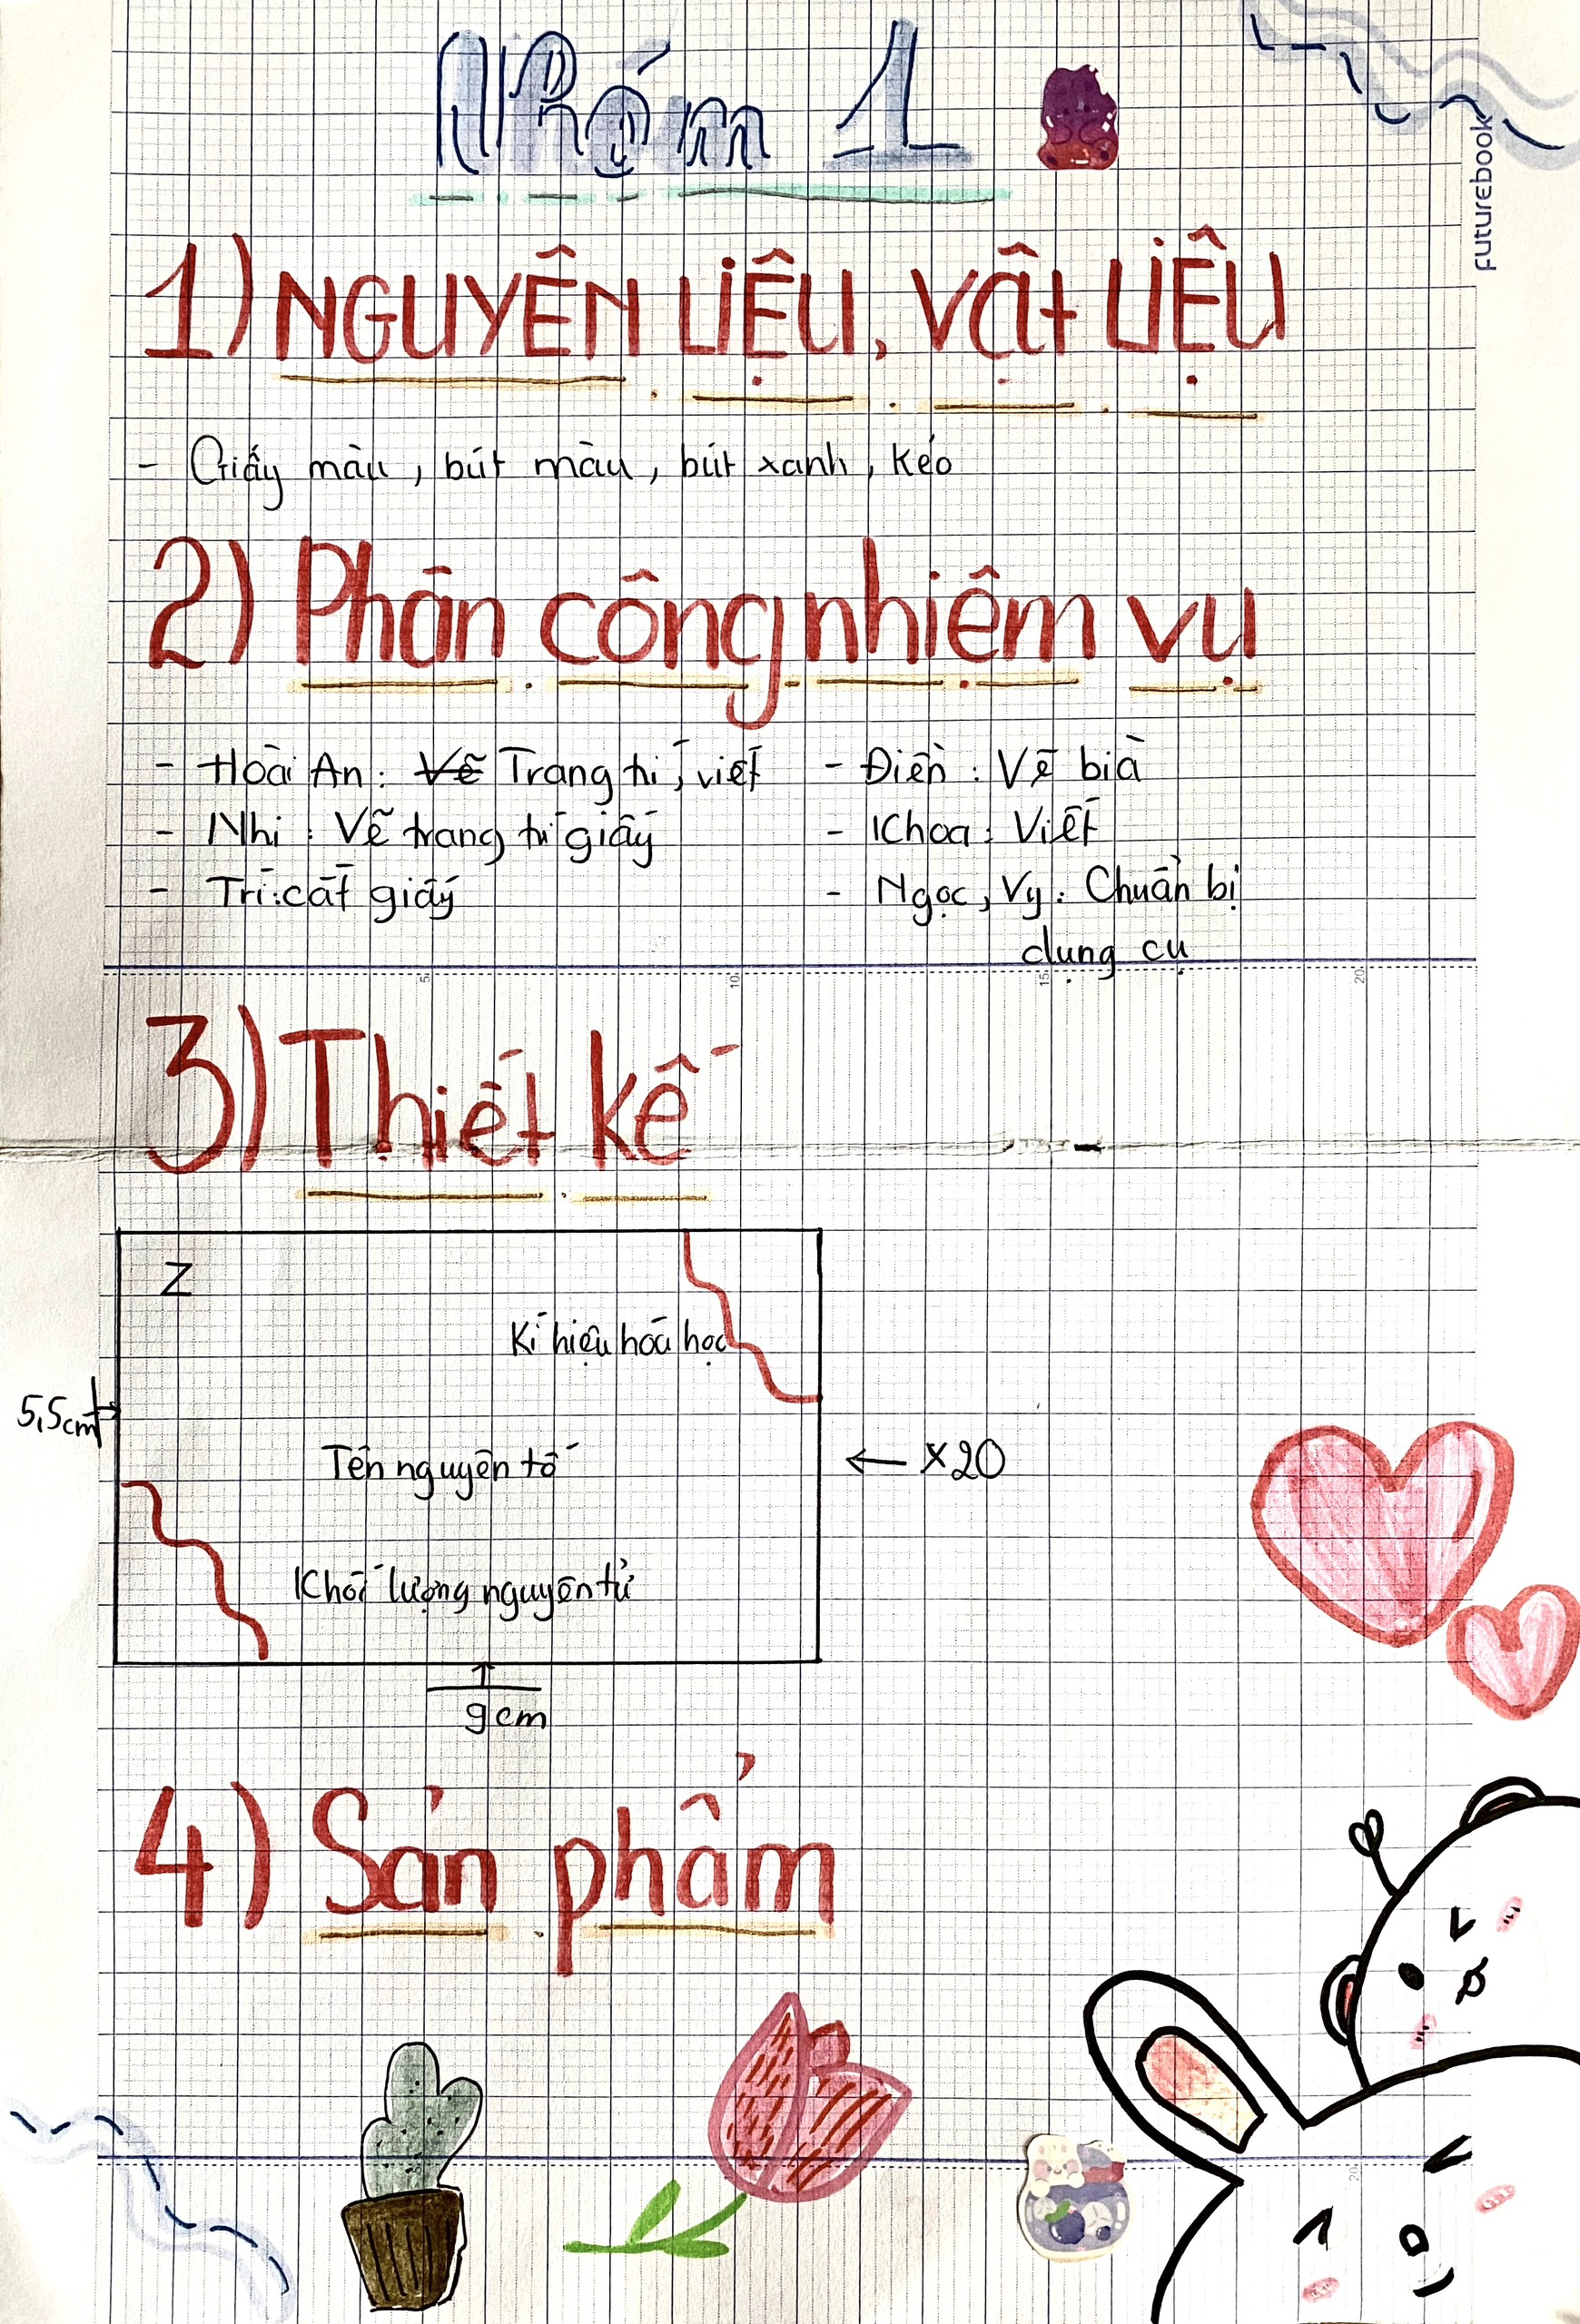 Nhóm 1
futurebook
1) NGUYÊN LIỆU, VẬT LIỆU
- Giấy màu, bút màu, bút xanh, kéo
2) Phân công nhiệm vụ
- Hoài An: Vẽ Trang trí, viết
- Nhi: Vẽ trang trí giấy
- Trí: cắt giấy
- Điền: Vẽ bìa
- Khoa: Viết
- Ngọc, Vy: Chuẩn bị
dụng cụ
5 10 15 20
3) Thiết kế
Z
Kí hiệu hoá học
5,5cm
Tên nguyên tố
← x20
Khối lượng nguyên tử
9cm
4) Sản phẩm
20